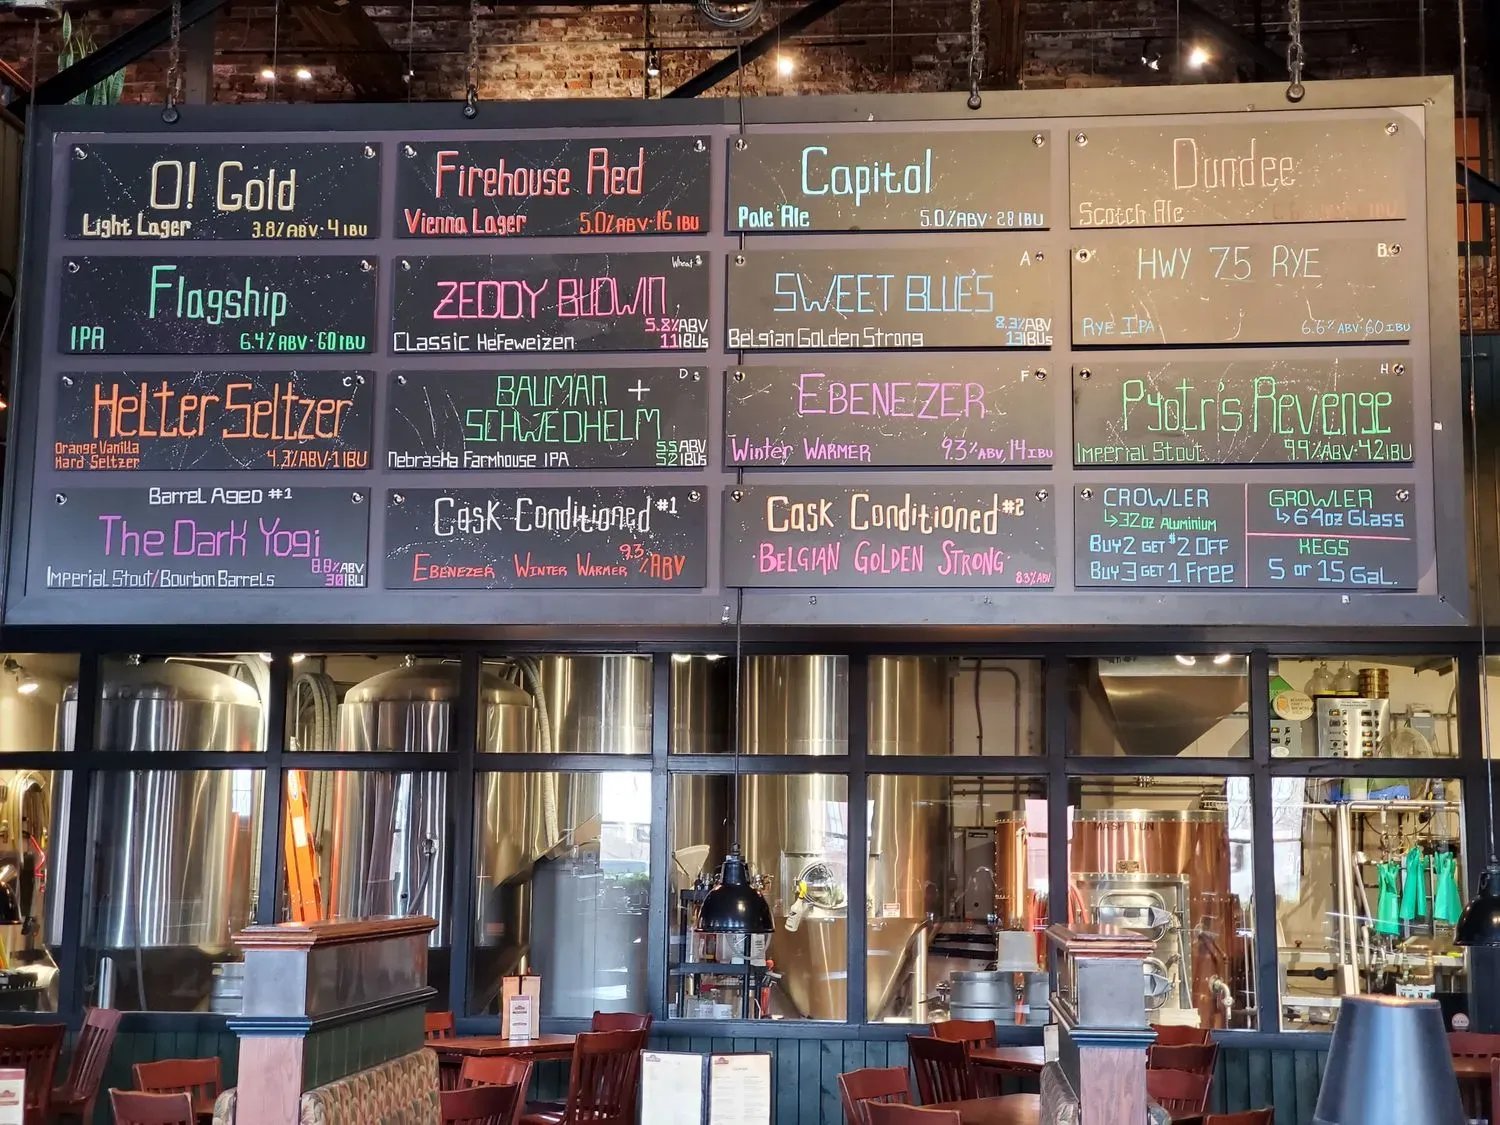 O! Gold
Light Lager 3.8% ABV · 4 IBU
Firehouse Red
Vienna Lager 5.0% ABV · 16 IBU
Capital
Pale Ale 5.0% ABV · 28 IBU
Dundee
Scotch Ale
Flagship
IPA 6.4% ABV · 60 IBU
Wheat
ZEDDY BUDWIN
5.8% ABV
Classic Hefeweizen 11 IBUs
A
SWEET BLUE'S
8.3% ABV
Belgian Golden Strong 13 IBUs
B
HWY 75 RYE
Rye IPA 6.6% ABV · 60 IBU
C
Helter Seltzer
Orange Vanilla
Hard Seltzer 4.3% ABV · 1 IBU
D
BAUMAN +
SCHWEDHELM
5.5 ABV
Nebraska Farmhouse IPA 52 IBUs
F
EBENEZER
Winter Warmer 9.3% ABV, 14 IBU
H
Pyotr's Revenge
Imperial Stout 9.9% ABV · 42 IBU
Barrel Aged #1
The Dark Yogi
8.8% ABV
Imperial Stout/Bourbon Barrels 30 IBU
Cask Conditioned #1
Ebenezer Winter Warmer 9.3 % ABV
Cask Conditioned #2
· Belgian Golden Strong ·
8.3% ABV
CROWLER
↳ 32oz Aluminium
Buy 2 GET $2 OFF
Buy 3 GET 1 Free
GROWLER
↳ 64oz Glass
KEGS
5 or 15 Gal.
MASH TUN